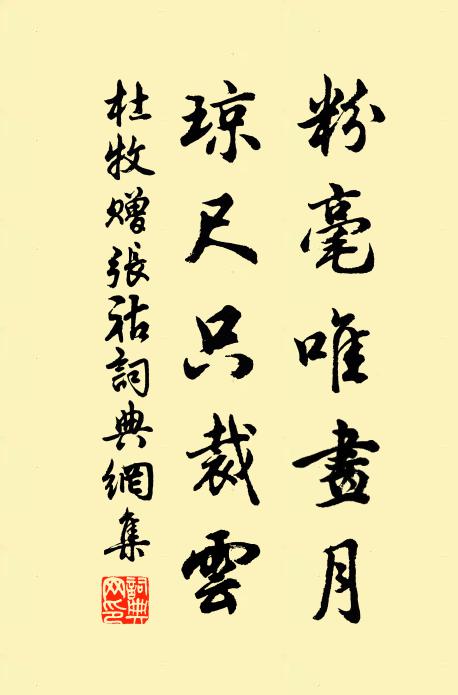 粉毫唯畫月
琼尺只裁雲
杜牧贈張祜詞典網集
詞典网印